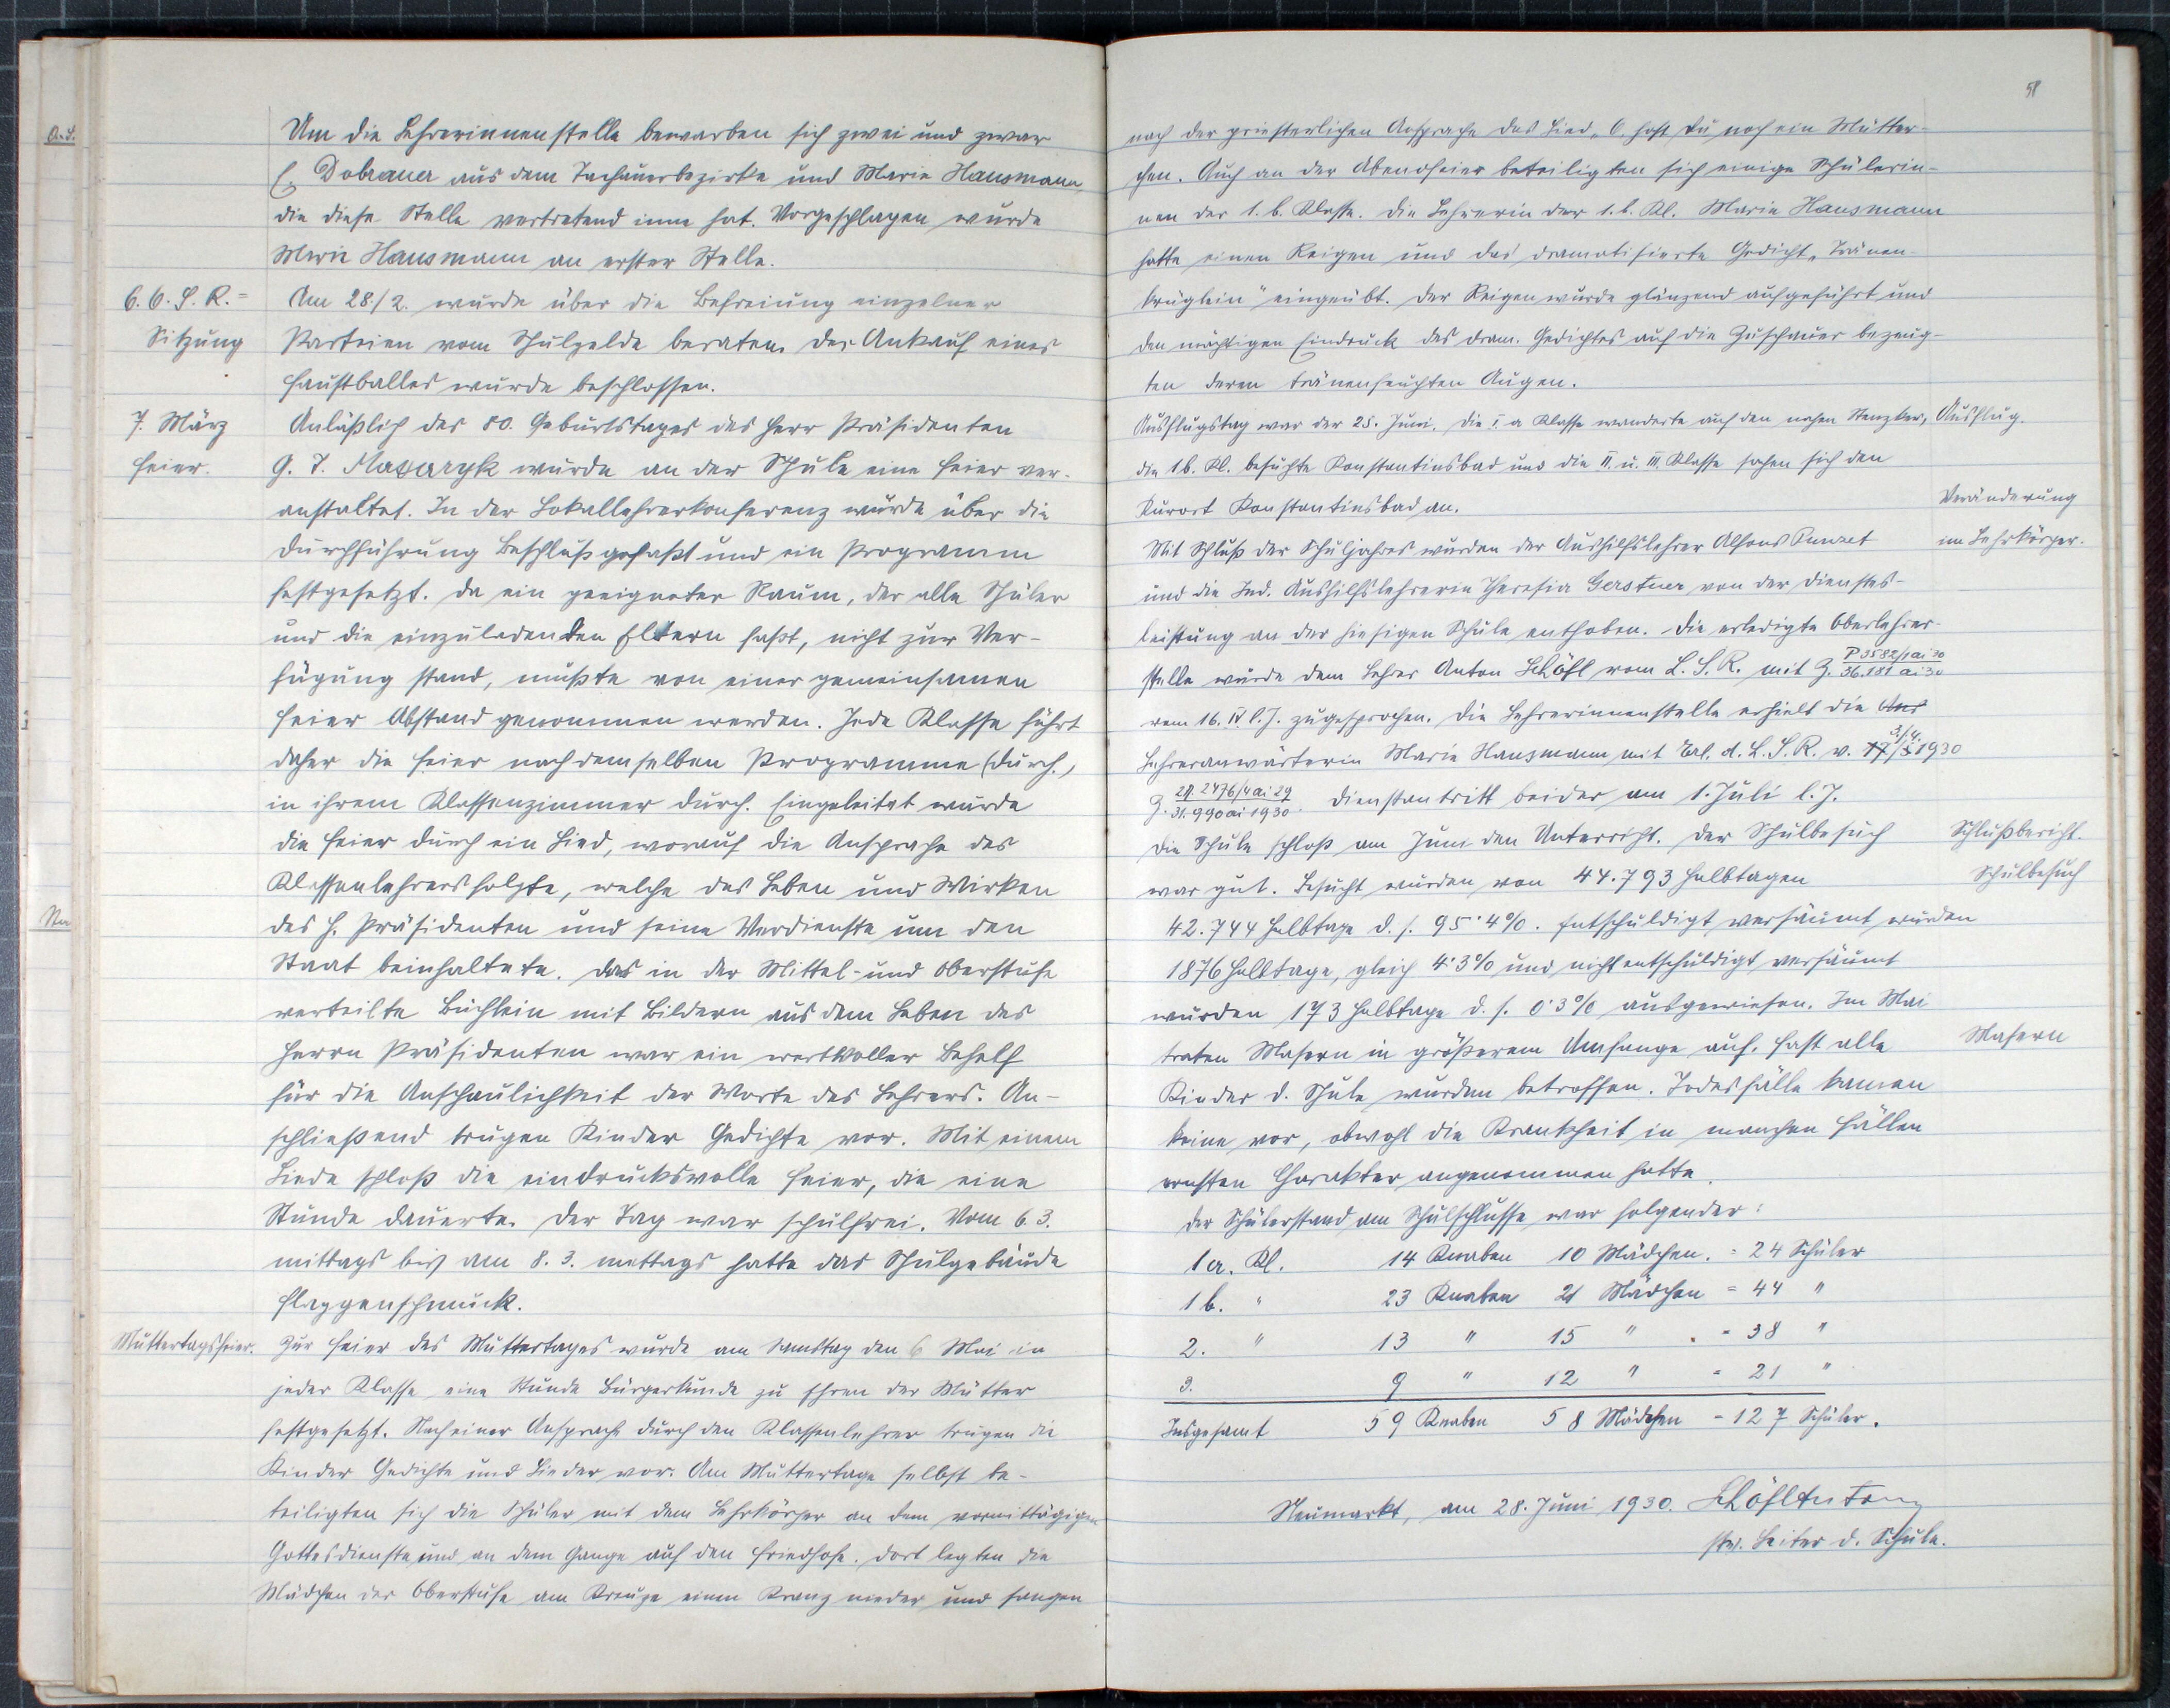 Um die Lehrerinnenstelle bewarben sich zwei und zwar
E. Dobrauer aus dem Tachauerbezirke und Marie Hausmann,
die diese Stelle vertretend inne hat. Vorgeschlagen wurde
Marie Hausmann an erster Stelle.
6. O. S. R.=
Sitzung
Am 28./2. wurde über die Befreiung einzelner
Parteien vom Schulgelde beraten. Der Ankauf eines
Faustballes wurde beschlossen.
7. März
Feier.
Anläßlich des 80. Geburtstages des Herr Präsidenten
G. T. Masaryk wurde an der Schule eine Feier ver-
anstaltet. In der Lokallehrerkonferenz wurde über die
Durchführung Beschluß gefaßt und ein Programm
festgesetzt. Da ein geeigneter Raum, der alle Schüler
und die einzuladenden Eltern faßt, nicht zur Ver-
fügung stand, mußte von einer gemeinsamen
Feier Abstand genommen werden. Jede Klasse führt
daher die Feier nach demselben Programme (durch,
in ihrem Klassenzimmer durch. Eingeleitet wurde
die Feier durch ein Lied, worauf die Ansprache des
Klassenlehrers folgte, welche das Leben und Wirken
des H. Präsidenten und seine Verdienste um den
Staat beinhaltete. Das in der Mittel- und Oberstufe
verteilte Büchlein mit Bildern aus dem Leben des
Herrn Präsidenten war ein wertvoller Behelf
für die Anschaulichkeit der Worte des Lehrers. An-
schließend trugen Kinder Gedichte vor. Mit einem
Liede schloß die eindrucksvolle Feier, die eine
Stunde dauerte. Der Tag war schulfrei. Vom 6.3.
mittags bis am 8.3. mittags hatte das Schulgebäude
Flaggenschmuck.
Muttertagsfeier.
Zur Feier des Muttertages wurde am Samstag den 6 Mai in
jeder Klasse eine Stunde Bürgerkunde zu Ehren der Mütter
festgesetzt. Nach einer Ansprache durch den Klassenlehrer trugen die
Kinder Gedichte und Lieder vor. Am Muttertage selbst be-
teiligten sich die Schüler mit dem Lehrkörper an dem vormittägigen
Gottesdienste und an dem Gange auf den Friedhofe. Dort legten die
Mädchen der Oberstufe am Kreuze einen Kranz nieder und sangen
58
nach der priesterlichen Ansprache das Lied „O, hast du noch ein Mütter-
chen. Auch an der Abendfeier beteiligten sich einige Schülerin-
nen der 1.b. Klasse. Die Lehrerin der 1.b. Kl. Marie Hausmann
hatte einen Reigen und das dramatisierte Gedicht „Tränen-
krüglein" eingeübt. Der Reigen wurde glänzend aufgeführt und
den mächtigen Eindruck des dram. Gedichtes auf die Zuschauer bezeug-
ten deren tränenfeuchten Augen.
Ausflugstag war der 25. Juni. Die I. a Klasse wanderte auf den nahen
Ausflug.
die 1b. Kl. besuchte Konstantinsbad und die II. u. III. Klasse sahen sich den
Kurort Konstantinsbad an.
Veränderung
im Lehrkörper.
Mit Schluß des Schuljahres wurden der Aushilfslehrer Alfons
und die Ind. Aushilfslehrerin Theresia Gerstner von der Dienstes-
leistung an der hiesigen Schule enthoben. Die erledigte Oberlehrer-
stelle wurde dem Lehrer Anton Schöfl vom L. S. R. mit Z. P 3582/1 ai 30
36.181 ai 30
vom 16. IV l. J. zugesprochen. Die Lehrerinnenstelle erhielt die
Lehreranwärterin Marie Hausmann mit Erl. d. L. S. R. v. 3./4. 1930
Z. 29. 2476/4 ai 29
31.990 ai 1930. Dienstantritt beider am 1. Juli l. J.
Die Schule schloß am Juni den Unterricht. Der Schulbesuch
Schlußbericht.
Schulbesuch
war gut. Besucht wurden von 44.793 Halbtagen
42.744 Halbtage d. s. 95·4%. Entschuldigt versäumt wurden
1876 Halbtage, gleich 4·3% und nicht entschuldigt versäumt
wurden 173 Halbtage d. s. 0·3% ausgewiesen. Im Mai
Masern
traten Masern in größerem Umfange auf. Fast alle
Kinder d. Schule wurden betroffen. Todesfälle kamen
keine vor, obwohl die Krankheit in manchen Fällen
ernsten Charakter angenommen hatte.
Der Schülerstand am Schulschlusse war folgender:
1a. Kl. 14 Knaben 10 Mädchen. = 24 Schüler
1b. " 23 Knaben 21 Mädchen = 44 "
2. " 13 " 15 " = 38 "
3. 9 " 12 " = 21 "
Insgesamt 59 Knaben 58 Mädchen = 127 Schüler.
Neumarkt, am 28. Juni 1930. Schöfl Anton
stv. Leiter d. Schule.